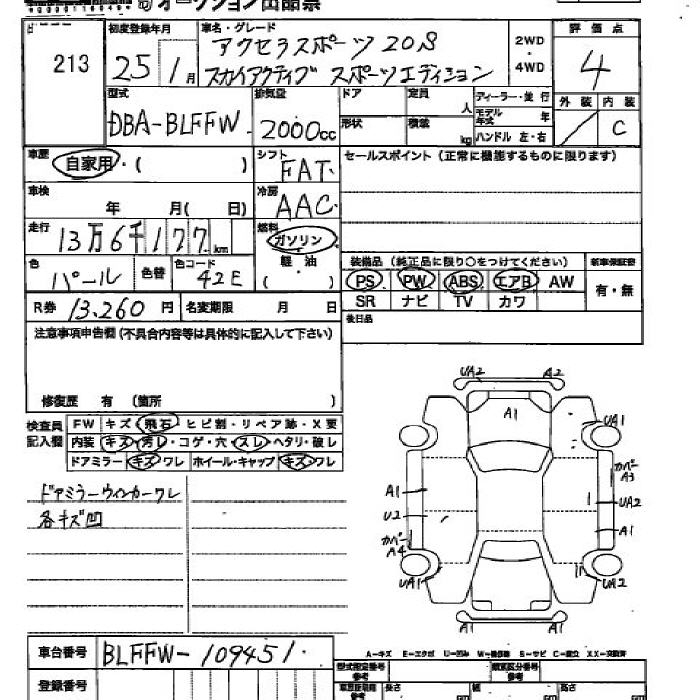 オークション出品票
213
初度登録年月
25年 1月
車名・グレード
アクセラスポーツ 20S
スカイアクティブ スポーツエディション
2WD
・
4WD
評価点
4
外装 内装
C
型式
DBA-BLFFW
排気量
2000cc
ドア
定員
人
形状
積載
kg
ディーラー・並行
モデル年式 年
ハンドル 左・右
車歴
自家用・( )
シフト
FAT
セールスポイント (正常に機能するものに限ります)
車検
年 月( 日)
冷房
AAC
走行
13万6千177km
燃料
ガソリン
軽油
( ・ )
色
パール
色替
色コード
42E
装備品 (純正品に限り○をつけてください)
新車保証書
PS PW ABS エアB AW
SR ナビ TV カワ
有・無
R券 13,260円
名変期限 月 日
後日品
注意事項申告欄(不具合内容等は具体的に記入して下さい)
修復歴 有 (箇所 )
検査員
記入欄
FW キズ・飛石・ヒビ割・リペア跡・X要
内装 キズ・汚レ・コゲ・穴・スレ・ヘタリ・破レ
ドアミラー キズ・ワレ ホイール・キャップ キズ・ワレ
ドアミラーウィンカーワレ
各キズ凹
UA2 A2
A1
UA1
カバー
A3
A1
UA2
U2
A1
カバー
A4
UA1 UA2
A1 A1
A-キズ E-エクボ U-凹み W-補修跡 S-サビ C-腐食 XX-交換済
車台番号
BLFFW-109451
登録番号
型式指定番号
参考
類別区分番号
参考
長さ
幅
高さ
cm
cm